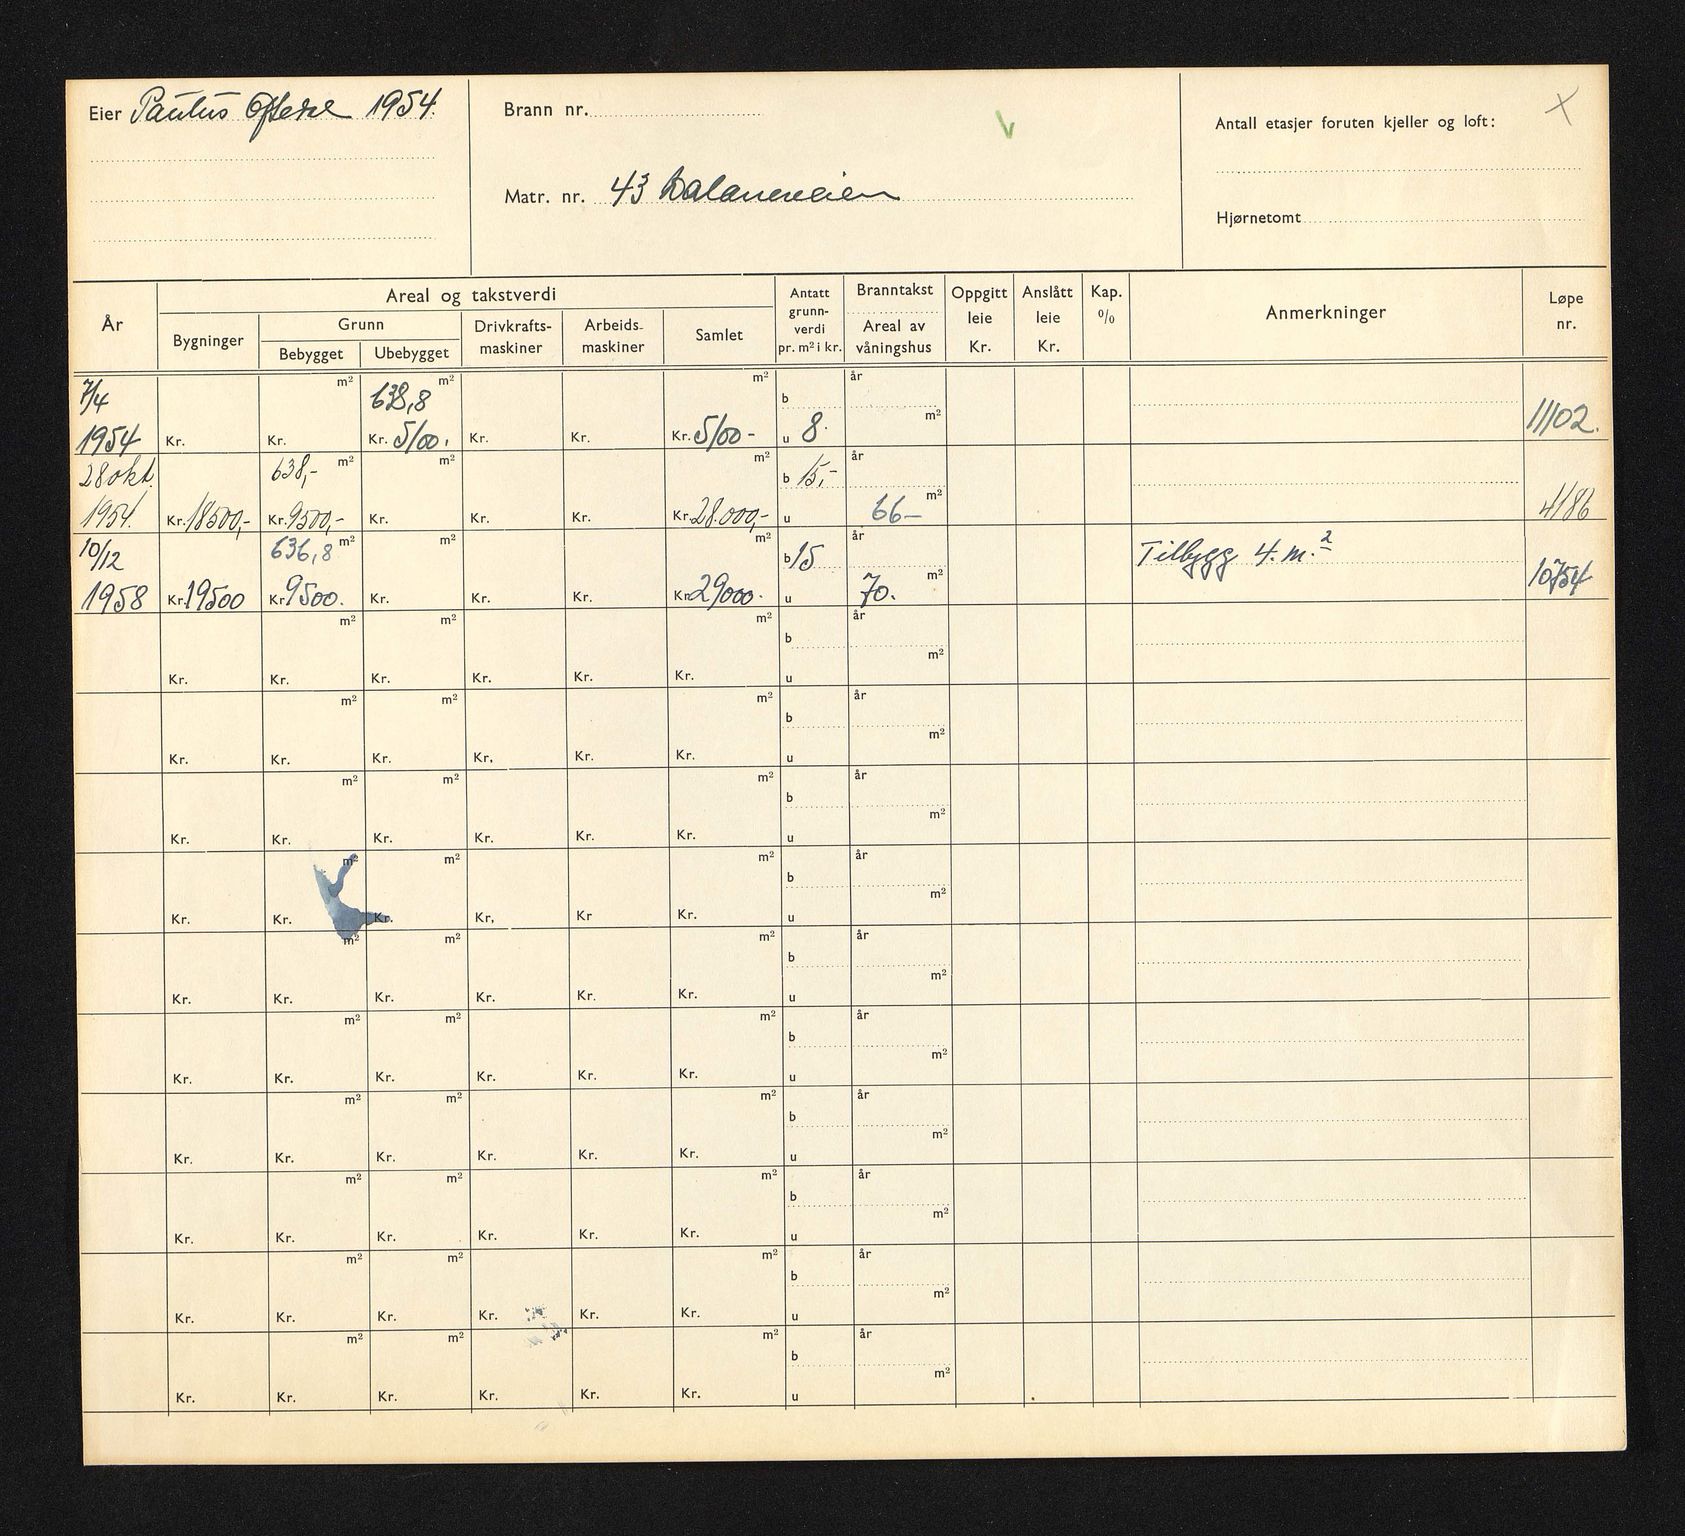 Eier Paulus Oftedal 1954.
Brann nr.
Matr. nr. 43 Dalaneveien
Antall etasjer foruten kjeller og loft:
Hjørnetomt
År
Areal og takstverdi
Bygninger
Grunn
Bebygget Ubebygget
Drivkrafts-
maskiner
Arbeids-
maskiner
Samlet
Antatt
grunn-
verdi
pr. m² i kr.
Branntakst
Areal av
våningshus
Oppgitt
leie
Kr.
Anslått
leie
Kr.
Kap.
%
Anmerkninger
Løpe
nr.
7/4 m² 638,8 m² m² b år
1954 Kr. Kr. Kr. 5100. Kr. Kr. Kr. 5100- u 8. m² 11102.
28 okt. 638,- m² m² m² b 15,- år
1954. Kr. 18500,- Kr. 9500,- Kr. Kr. Kr. Kr. 28.000,- u 66- m² 4186
10/12 636,8 m² m² m² b 15 år Tilbygg 4. m.²
1958 Kr. 19500 Kr. 9500. Kr. Kr. Kr. Kr. 29000. u 70. m² 10754
m² m² m² b år
Kr. Kr. Kr. Kr. Kr. Kr. u m²
m² m² m² b år
Kr. Kr. Kr. Kr. Kr. Kr. u m²
m² m² m² b år
Kr. Kr. Kr. Kr. Kr. Kr. u m²
m² m² m² b år
Kr. Kr. Kr. Kr. Kr Kr. u m²
m² m² m² b år
Kr. Kr. Kr. Kr. Kr. Kr. u m²
m² m² m² b år
Kr. Kr. Kr. Kr. Kr. Kr. u m²
m² m² m² b år
Kr. Kr. Kr. Kr. Kr. Kr. u m²
m² m² m² b år
Kr. Kr. Kr. Kr. Kr. Kr. u m²
m² m² m² b år
Kr. Kr. Kr. Kr. Kr. Kr. u m²
m² m² m² b år
Kr. Kr. Kr. Kr. Kr. Kr. u m²